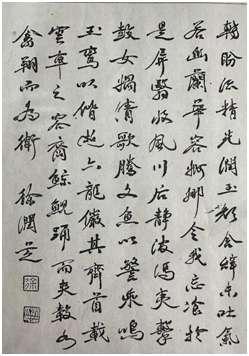 轉眄流精光潤玉顏含辭未吐氣
若幽蘭華容婀娜令我忘飡於
是屏翳收風川后靜波馮夷擊
鼓女媧清歌騰文魚以警乘鳴
玉鸞以偕逝六龍儼其齊首載
雲車之容裔鯨鯢踊而夾轂水
禽翔而為衛 徐潤